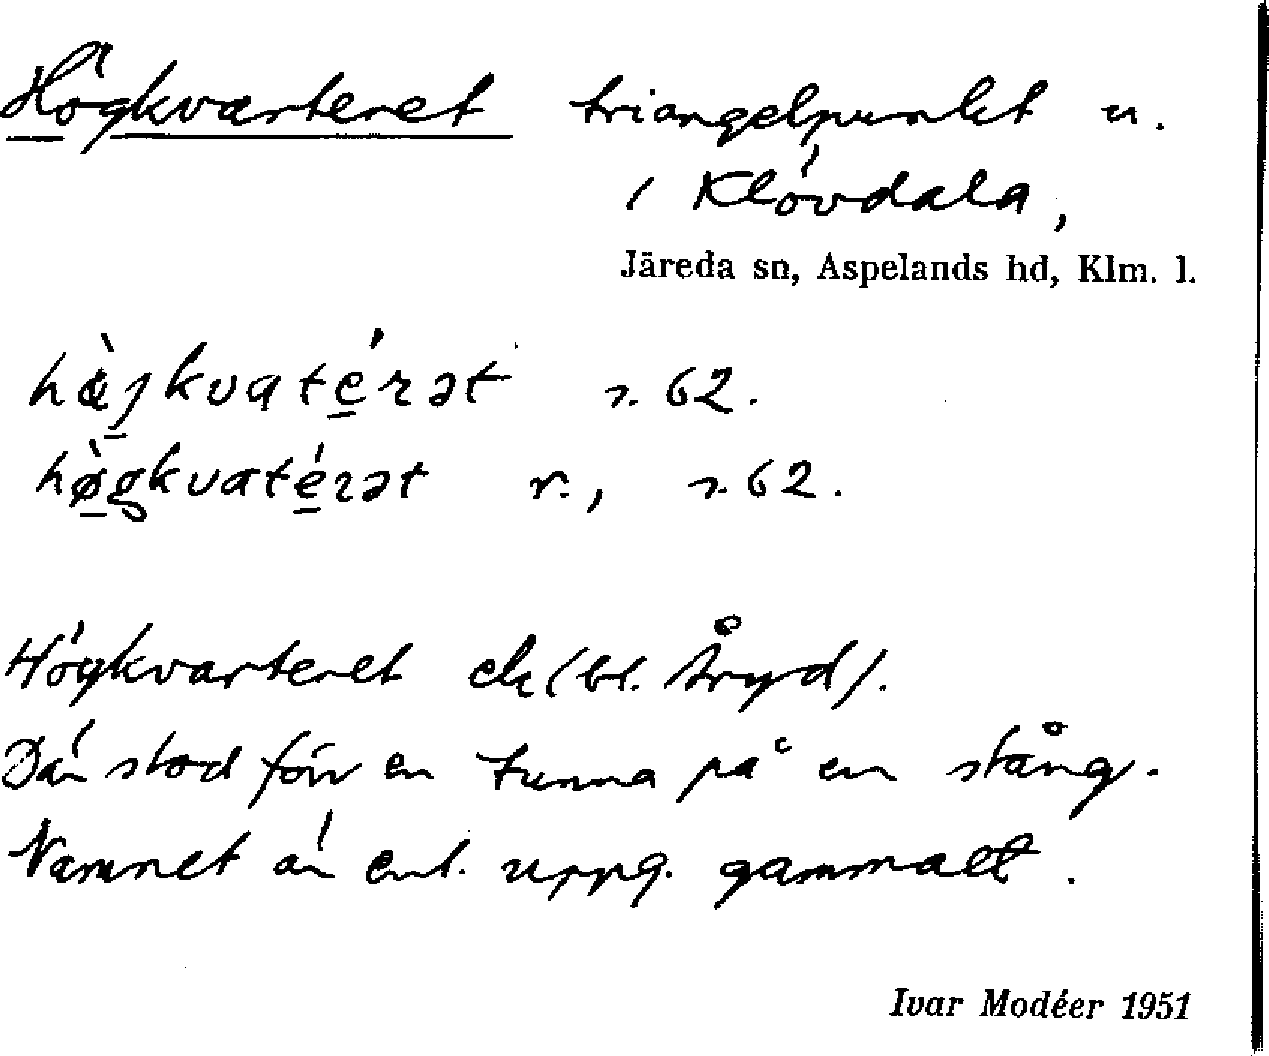 Högkvarteret triangelpunkt n.
i Klövdala,
Järeda sn, Aspelands hd, Klm. l.
hø̀jkvatérət s. 62.
hø̀gkvatérət r., s. 62.
Högkvarteret ek (bl. Åryd).
Där stod förr en tunna på en stång.
Namnet är enl. uppg. gammalt.
Ivar Modéer 1951